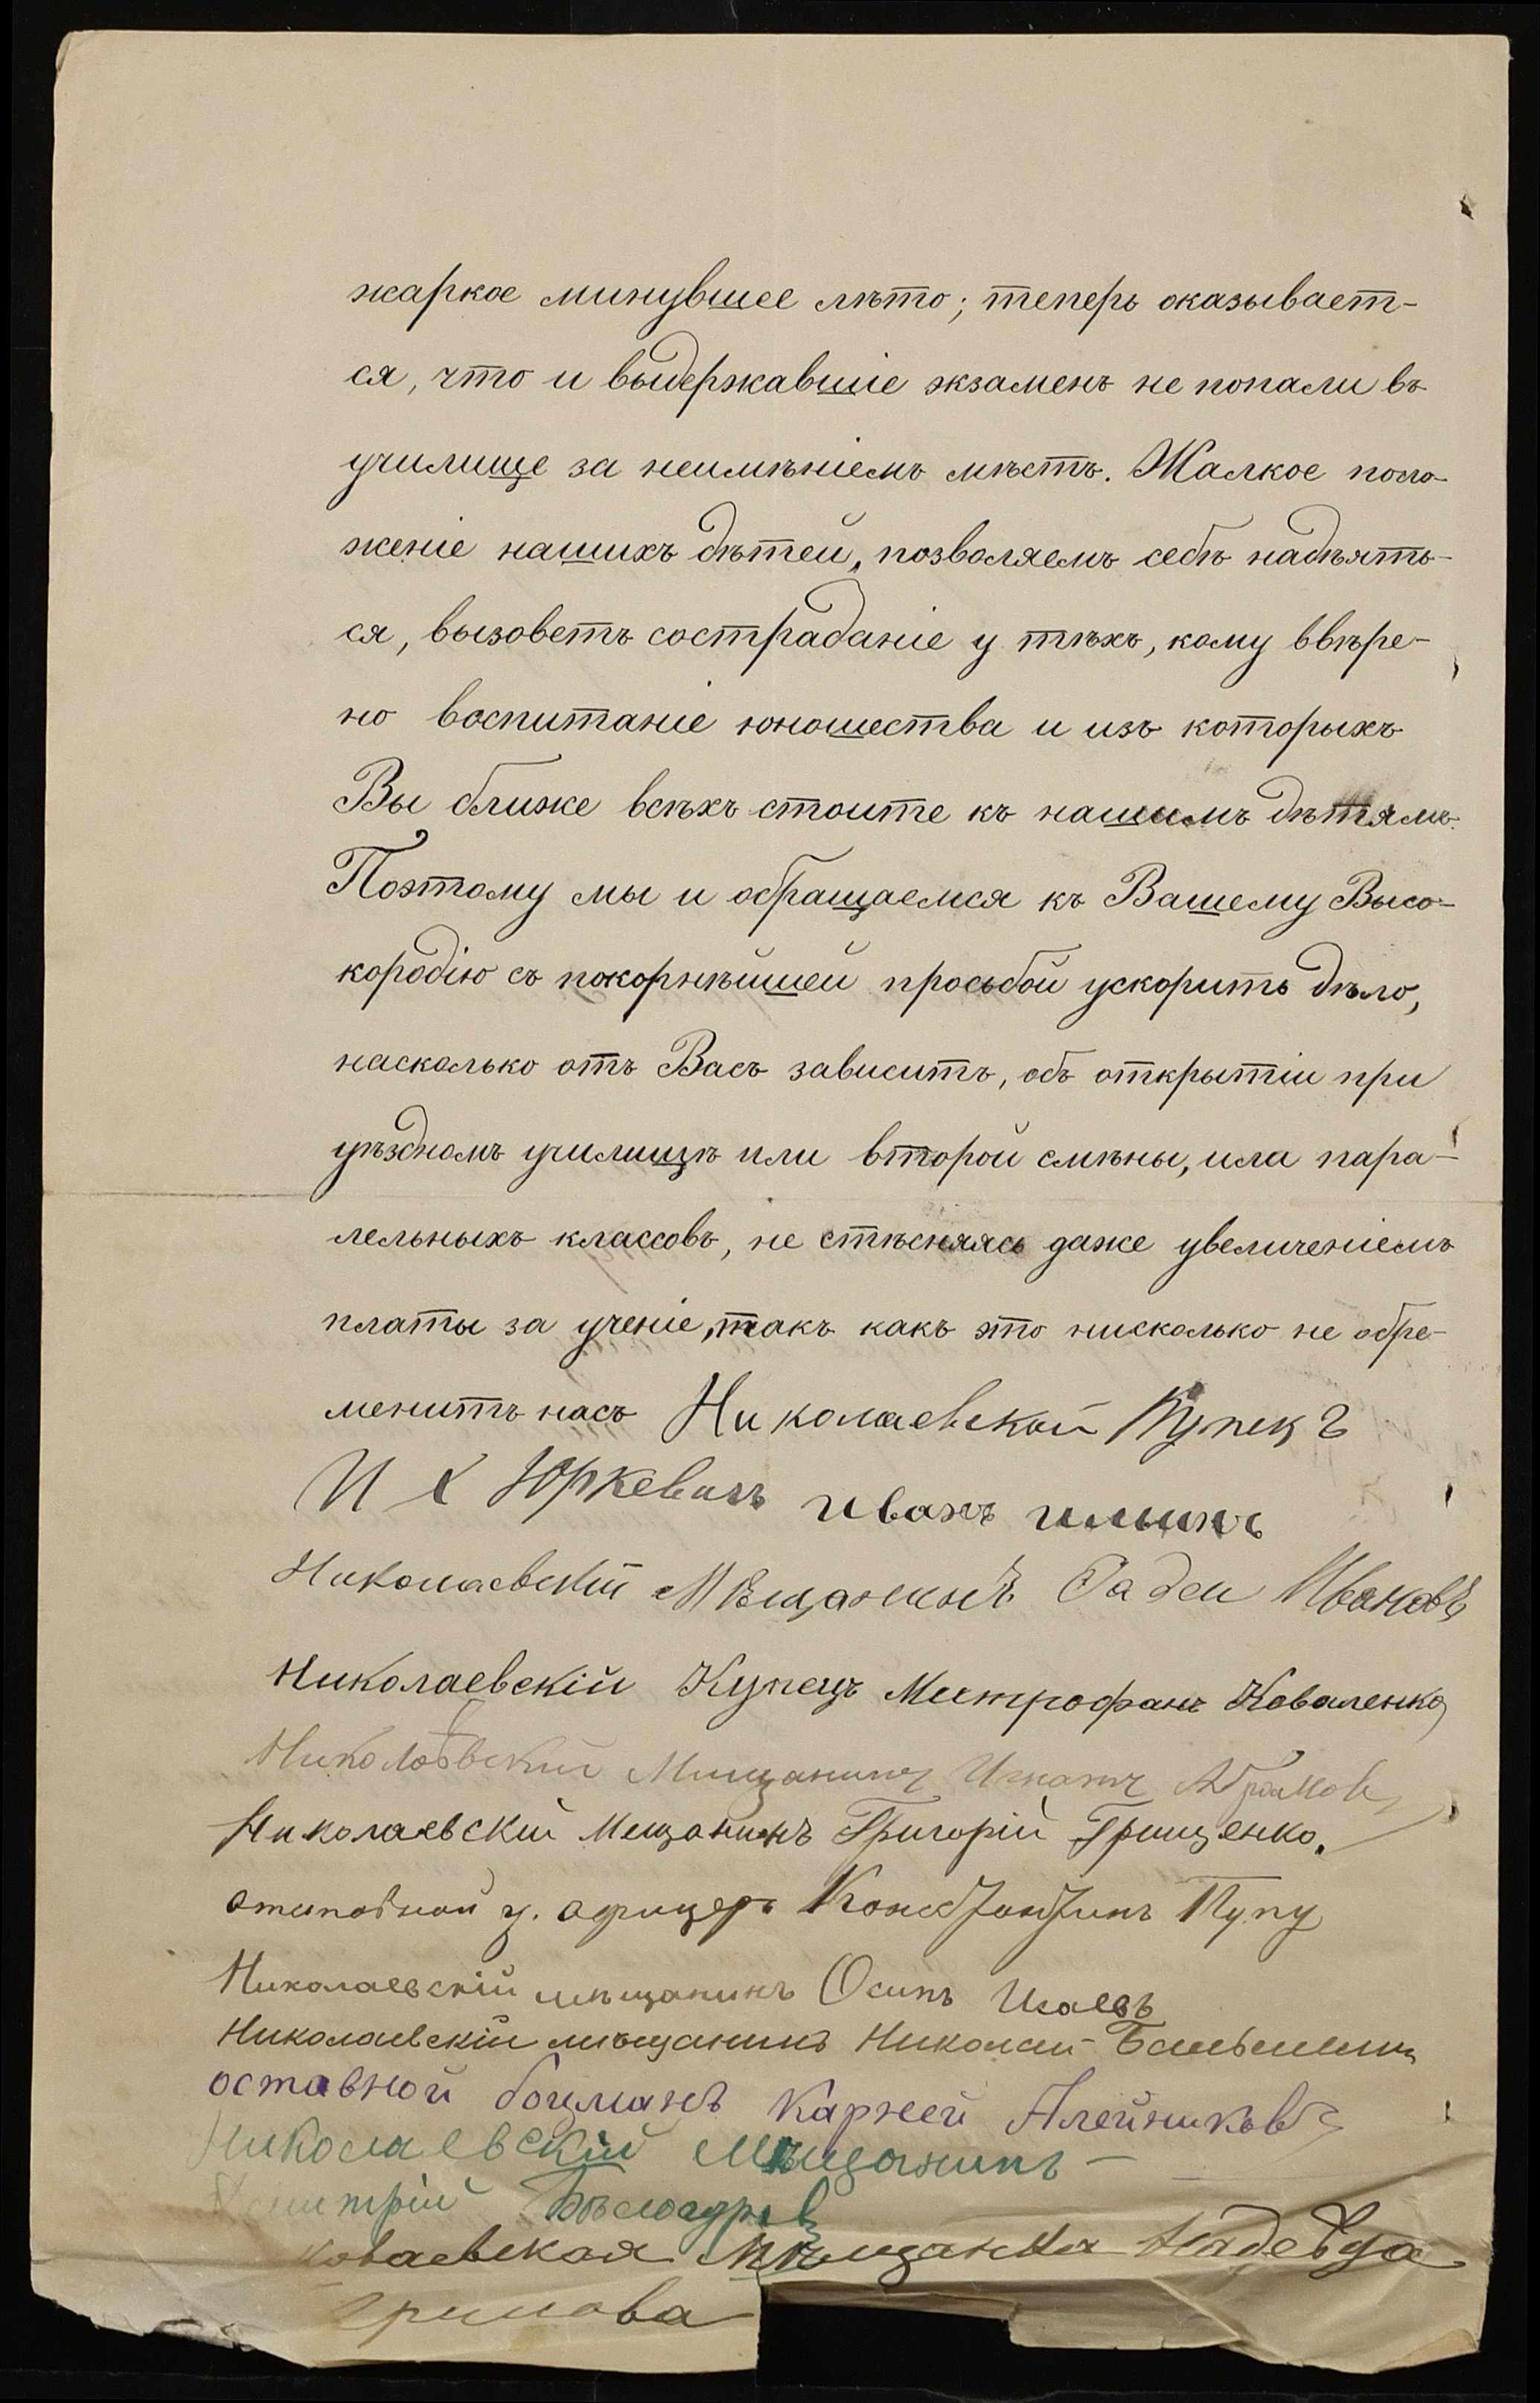 жаркое минувшее лѣто; теперь оказывает-
ся, что и выдержавшіе экзаменъ не попали въ
училище за неимѣніемъ мѣстъ. Жалкое поло-
женіе нашихъ дѣтей, позволяемъ себѣ надѣять-
ся, вызоветъ состраданіе у тѣхъ, кому ввѣре-
но воспитаніе юношества и изъ которыхъ
Вы ближе всѣхъ стоите къ нашимъ дѣтямъ.
Поэтому мы и обращаемся къ Вашему Высо-
кородію съ покорнѣйшей просьбой ускорить дѣло,
насколько отъ Васъ зависитъ, объ открытіи при
уѣздномъ училищѣ или второй смѣны, или пара-
лельныхъ классовъ, не стѣсняясь даже увеличеніемъ
платы за ученіе, такъ какъ это нисколько не обре-
менитъ насъ Николаевской Купецъ
И Х Юркевичъ иванъ илинъ
Николаевскій Мѣщанинъ Фадеи Ивановъ
Николаевскій Купецъ Митрофанъ Коваленко
Мищанинъ Игнатъ
Николаевский Мещанинъ Григорій Грищенко.
офицеръ Константинъ Пупу
Николаевскій мѣщанинъ Осипъ Исаевъ
Николаевскій мѣщанинъ Николай
оставной боцманъ Карней Алейниковъ
Николаевскій Мѣщанинъ
митрій
Мѣщанка Надежда